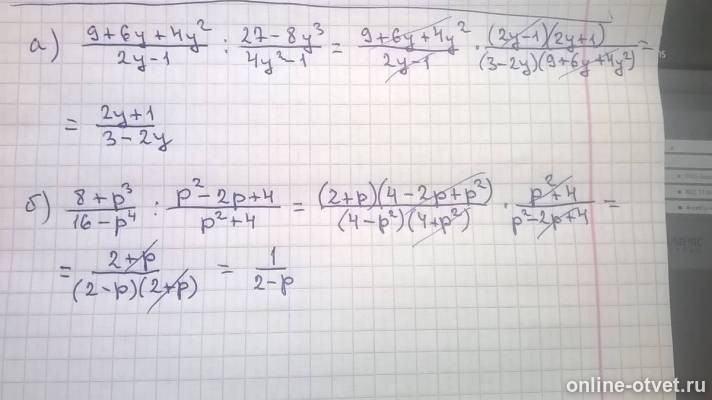 а) (9+6y+4y²)/(2y-1) : (27-8y³)/(4y²-1) = (9+6y+4y²)/(2y-1) · ((2y-1)(2y+1))/((3-2y)(9+6y+4y²)) =
= (2y+1)/(3-2y)
б) (8+p³)/(16-p⁴) : (p²-2p+4)/(p²+4) = ((2+p)(4-2p+p²))/((4-p²)(4+p²)) · (p²+4)/(p²-2p+4) =
= (2+p)/((2-p)(2+p)) = 1/(2-p)
online-otvet.ru